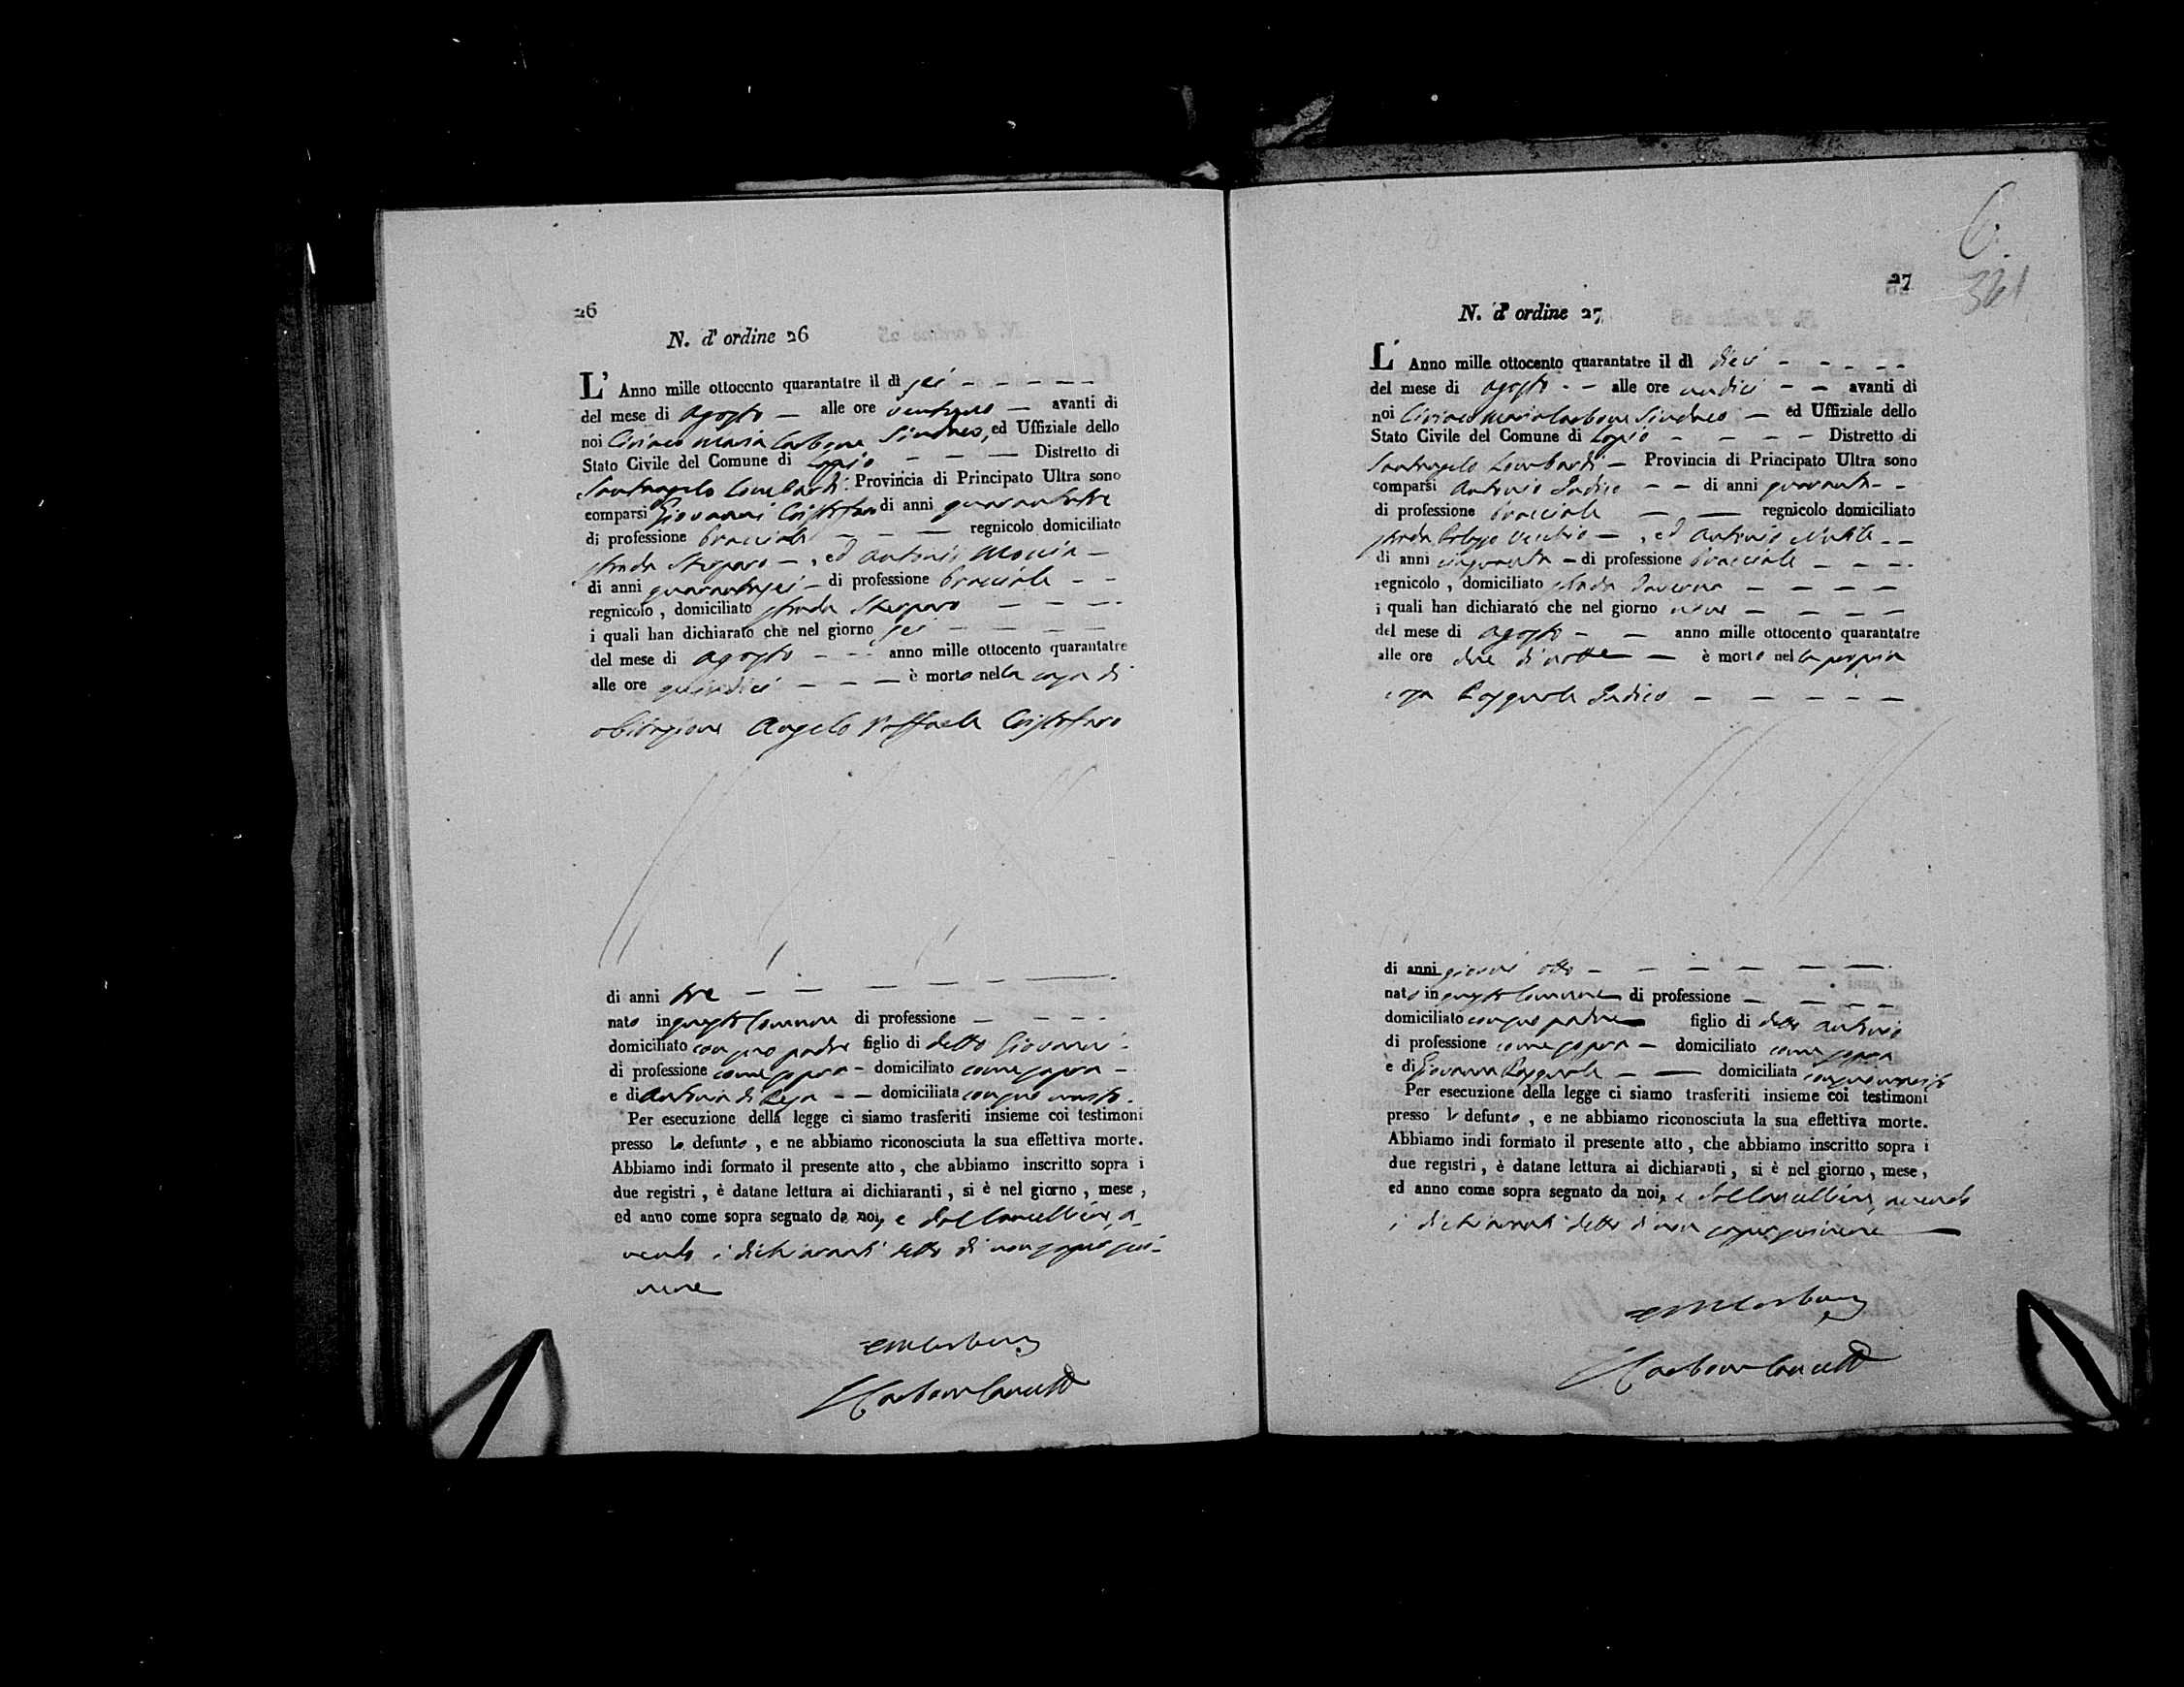 26
N. d' ordine 26
L' Anno mille ottocento quarantatre il dì sei
del mese di Agosto alle ore ventuno avanti di
noi Ciriaco Maria Carbone Sindaco, ed Uffiziale dello
Stato Civile del Comune di Lapio Distretto di
Santangelo Lombardi Provincia di Principato Ultra sono
comparsi Giovanni Cristofaro di anni quarantatre
di professione bracciale regnicolo domiciliato
strada, ed Antonio
di anni quarantasei di professione bracciale
regnicolo, domiciliato strada
i quali han dichiarato che nel giorno sei
del mese di Agosto anno mille ottocento quarantatre
alle ore quindici è morto nella casa di
abitazione Angelo Raffaele Cristofaro
di anni tre
nato in questo Comune di professione
domiciliato con suo padre figlio di detto Giovanni
di professione come sopra domiciliato come sopra
e di Antonia di domiciliata con suo marito.
Per esecuzione della legge ci siamo trasferiti insieme coi testimoni
presso lo defunto, e ne abbiamo riconosciuta la sua effettiva morte.
Abbiamo indi formato il presente atto, che abbiamo inscritto sopra i
due registri, è datane lettura ai dichiaranti, si è nel giorno, mese,
ed anno come sopra segnato da noi, e dal Cancelliere, a-
vendo i dichiaranti detto di non sapere scri-
vere
CMCarbone
Carbone Canc
27
6.
361
N. d' ordine 27
L' Anno mille ottocento quarantatre il dì dieci
del mese di Agosto alle ore undici avanti di
noi Ciriaco Maria Carbone Sindaco ed Uffiziale dello
Stato Civile del Comune di Lapio Distretto di
Santangelo Lombardi Provincia di Principato Ultra sono
comparsi Antonio Iodice di anni quaranta
di professione bracciale regnicolo domiciliato
strada Vecchio, ed Antonio
di anni cinquanta di professione bracciale
regnicolo, domiciliato strada Taverna
i quali han dichiarato che nel giorno nove
del mese di Agosto anno mille ottocento quarantatre
alle ore due di notte è morto nella propria
casa Pasquale Iodice
di anni giorni otto
nato in questo Comune di professione
domiciliato con suo padre figlio di detto Antonio
di professione come sopra domiciliato come sopra
è di Giovanna Pasquale domiciliata con suo marito
Per esecuzione della legge ci siamo trasferiti insieme coi testimoni
presso lo defunto, e ne abbiamo riconosciuta la sua effettiva morte.
Abbiamo indi formato il presente atto, che abbiamo inscritto sopra i
due registri, è datane lettura ai dichiaranti, si è nel giorno, mese,
ed anno come sopra segnato da noi, e dal Cancelliere, avendo
i dichiaranti detto di non sapere scrivere
CMCarbone
Carbone Canc